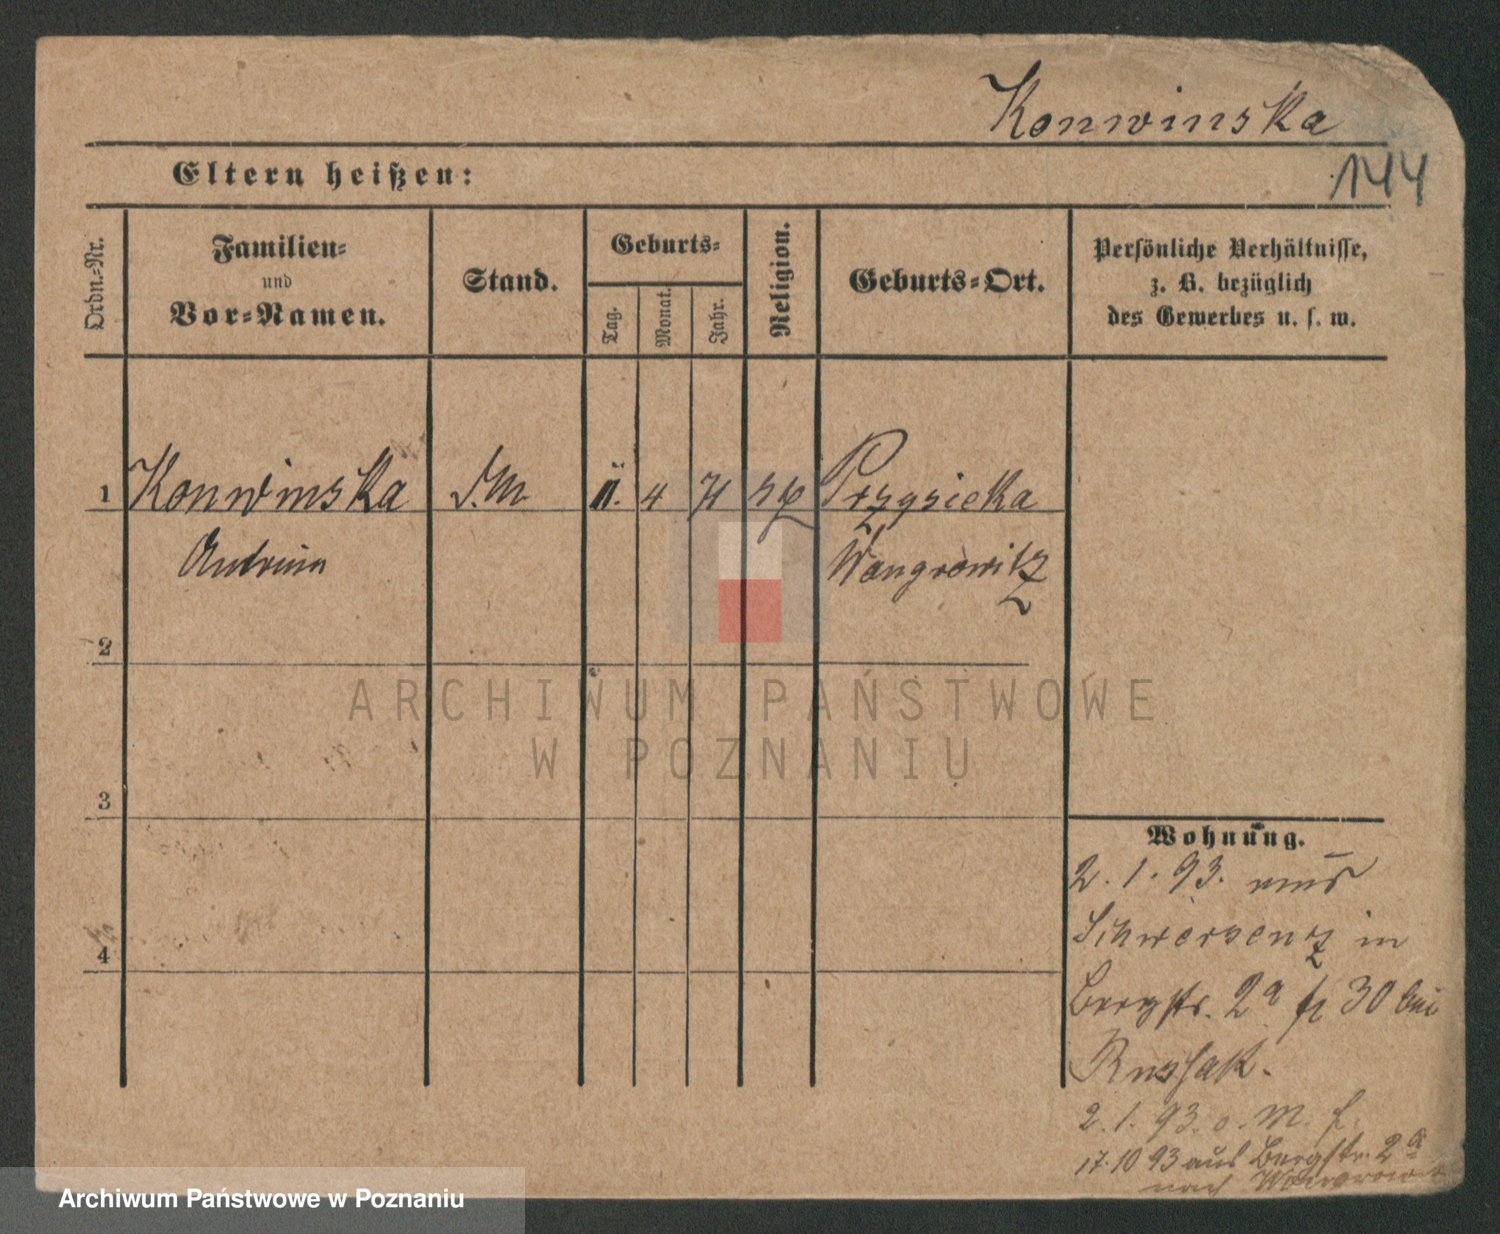 Konwinska
144
Eltern heißen:
Ordn.-Nr.
Familien-
und
Vor-Namen.
Stand.
Geburts-
Tag.
Monat.
Jahr.
Religion.
Geburts-Ort.
Persönliche Verhältnisse,
z. B. bezüglich
des Gewerbes u. s. w.
1 Konwinska 11. 4 71 Przysieka
Wongrowitz
2
3
4
Wohnung.
2. 1. 93. aus
Schwersenz in
Bergstr. 2a 30 bei
Russak.
2. 1. 93. o. M. f.
17. 10 93 aus Bergstr. 2a
nach
ARCHIWUM PAŃSTWOWE
W POZNANIU
Archiwum Państwowe w Poznaniu